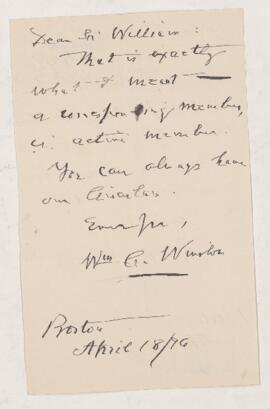 Dear Sir William:
That is exactly
what I meant —
a corresponding member,
active member.
You can always have
our Circulars.
Ever yrs,
Wm
Boston
April 18/96